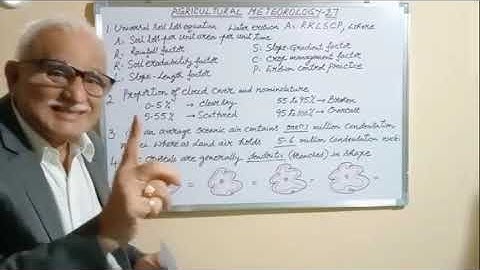 AGRICULTURAL METEOROLOGY-27
1. Universal soil loss equation Water erosion A = RKLSCP, where
A: Soil loss per unit area per unit time
R: Rainfall factor S: Slope-Gradient factor
Soil erodability factor C: Crop management factor
Slope-length factor P: Erosion control practice
2. Proportion of cloud cover and nomenclature
0-5% → Clear sky 55 to 95% → Broken
5-55% → Scattered 95 to 100% → Overcast
3. an average oceanic air contains million condensation
nuclei whereas land air holds 5-6 million condensation nuclei
4. crystals are generally dendrites (branched) in shape